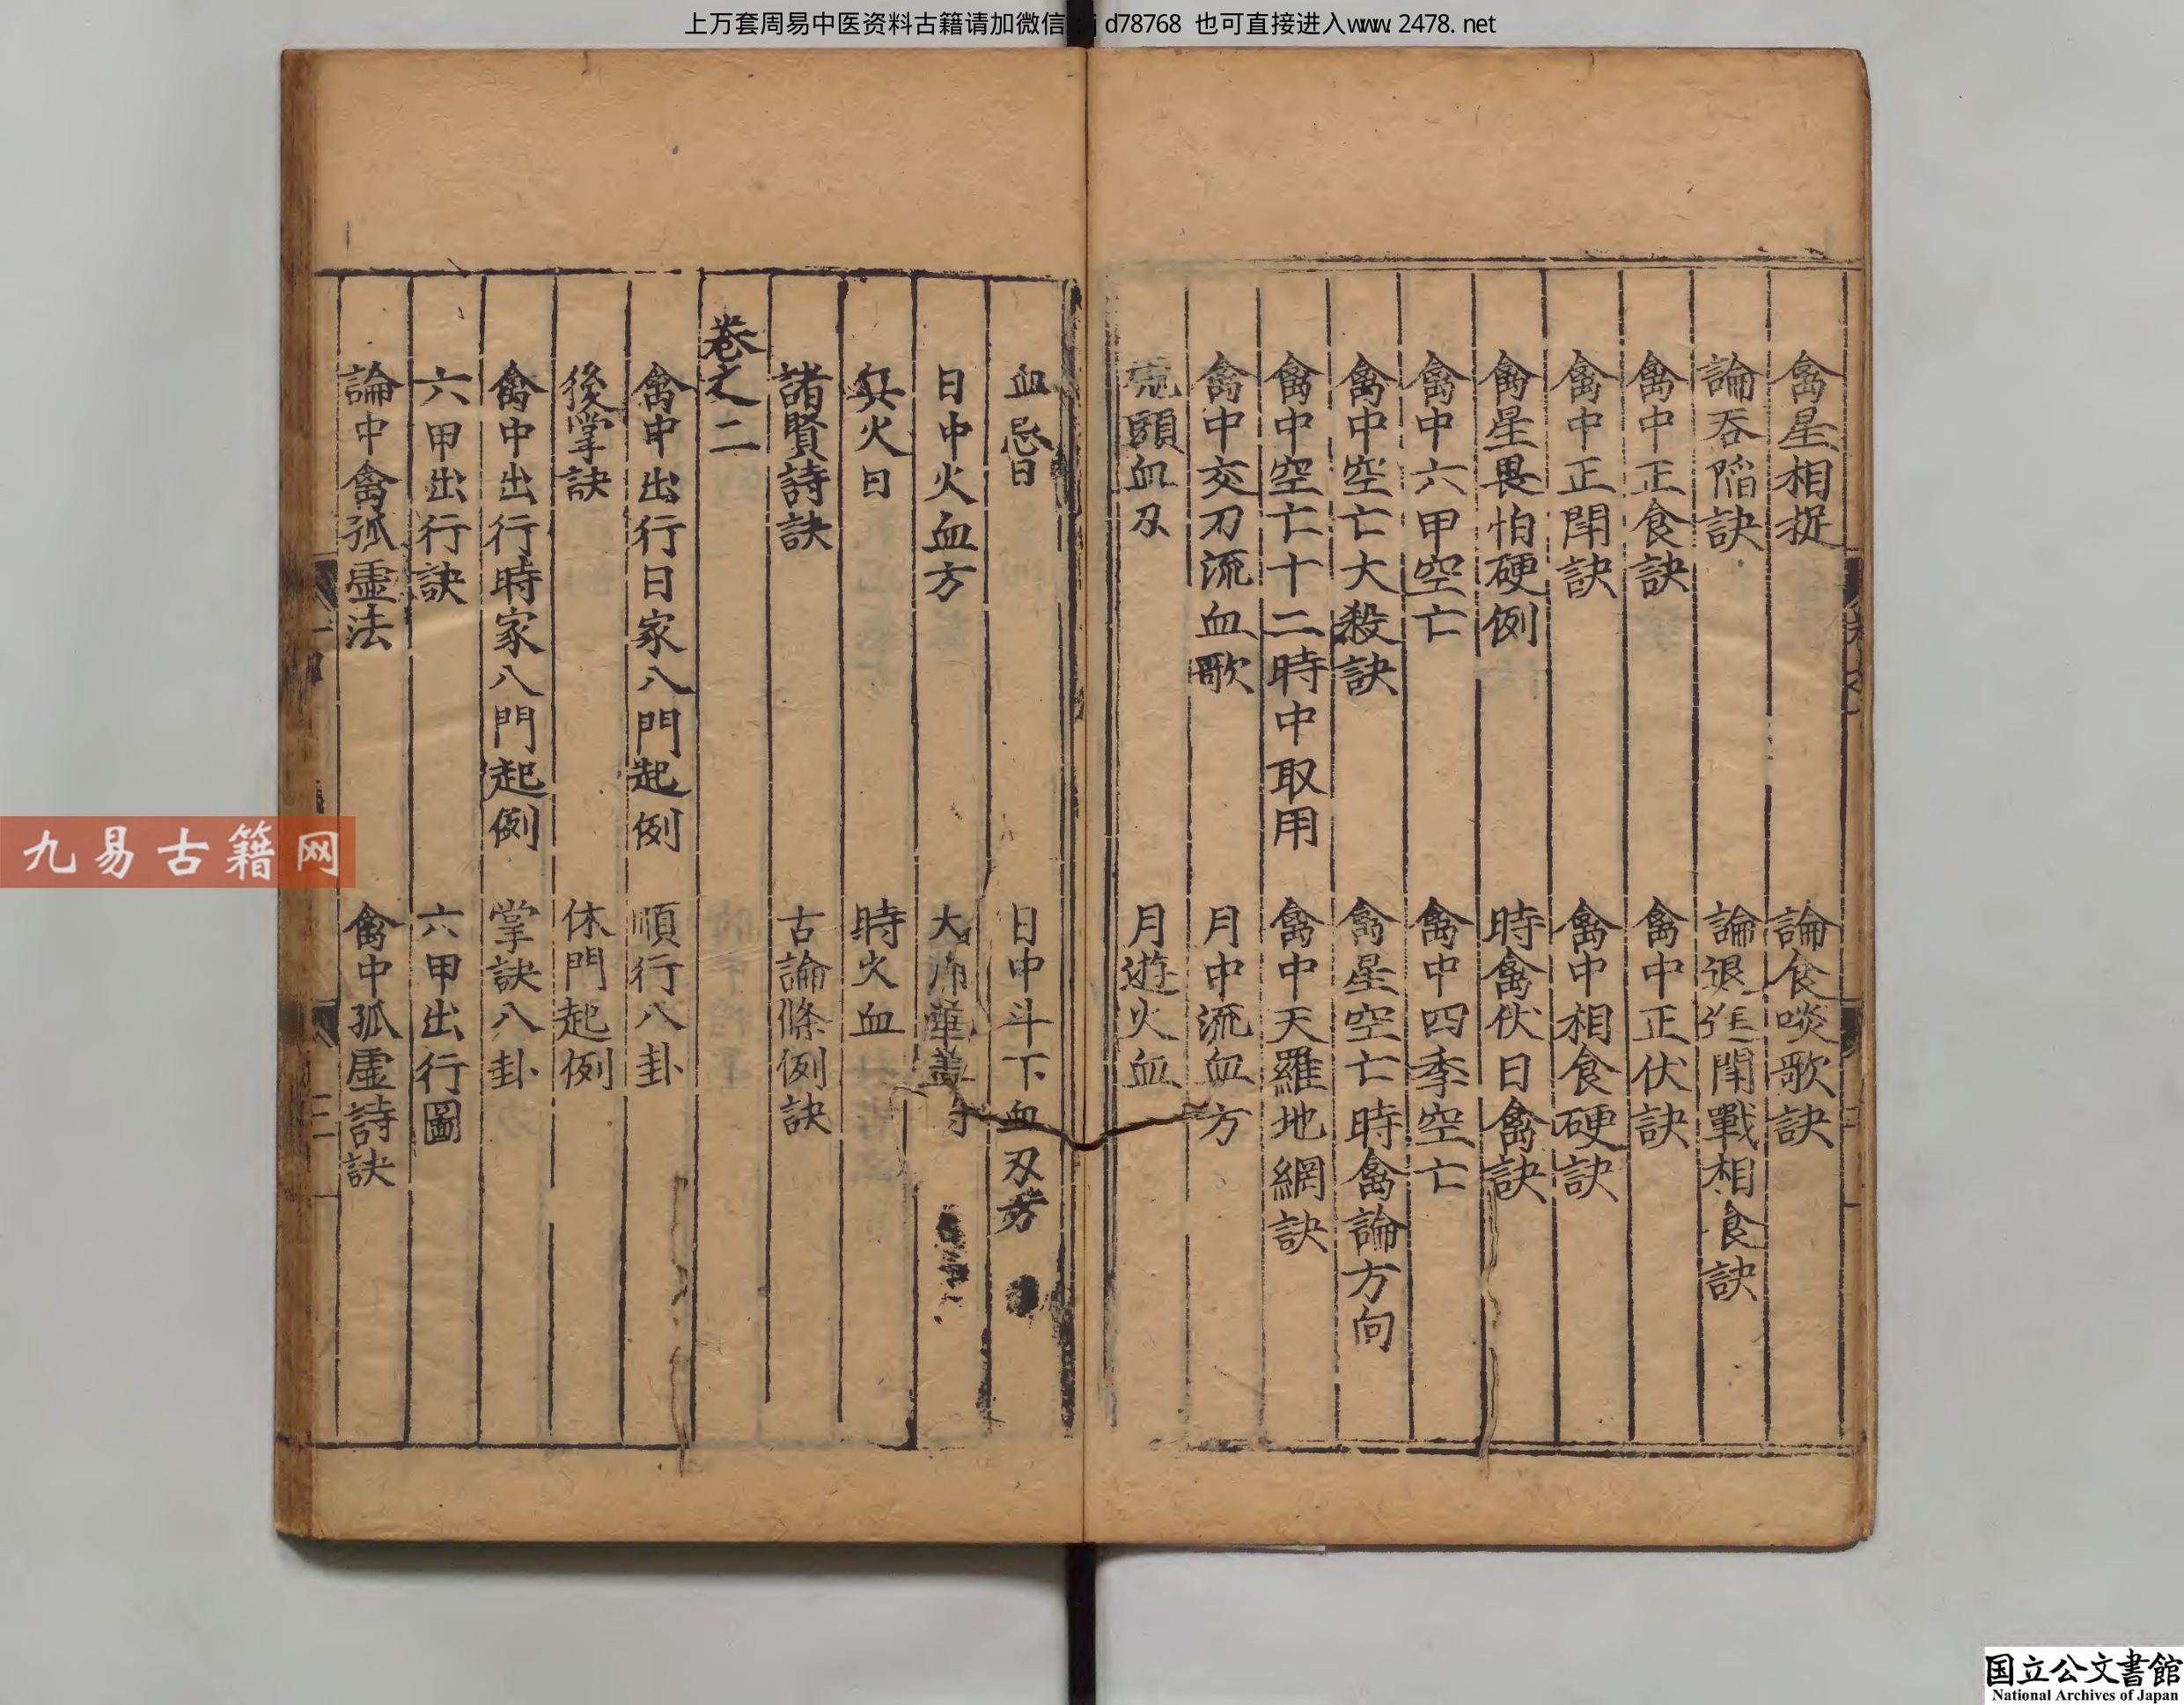 上万套周易中医资料古籍请加微信：jd78768 也可直接进入www.2478.net
禽星相捉 論食啖歌訣
論吞陷訣 論退進鬪戰相食訣
禽中正食訣 禽中正伏訣
禽中正鬪訣 禽中相食硬訣
禽星畏怕硬例 時禽伏日禽訣
禽中六甲空亡 禽中四季空亡
禽中空亡大殺訣 禽星空亡時禽論方向
禽中空亡十二時中取用 禽中天羅地網訣
禽中交刀流血歌 月中流血方
血刃 月遊火血
血忌日 日中斗下血刃方
日中火血方 大
兵火日 時火血
諸賢詩訣 古論條例訣
卷之二
禽中出行日家八門起例 順行八卦
後掌訣 休門起例
禽中出行時家八門起例 掌訣八卦
六甲出行訣 六甲出行圖
論中禽孤虛法 禽中孤虛詩訣
九易古籍网
国立公文書館
National Archives of Japan